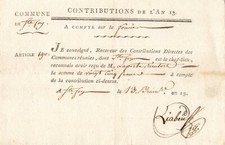 CONTRIBUTIONS DE L'AN 13.
COMMUNE
de Ste foy
A COMPTE sur le foncier
ARTICLE 190.
JE soussigné, Receveur des Contributions Directes des
Communes réunies, dont Ste foy est le chef-lieu,
reconnais avoir reçu de M.
la somme de vingt cinq francs à compte
de la contribution ci-dessus.
A Ste foy le an 13.